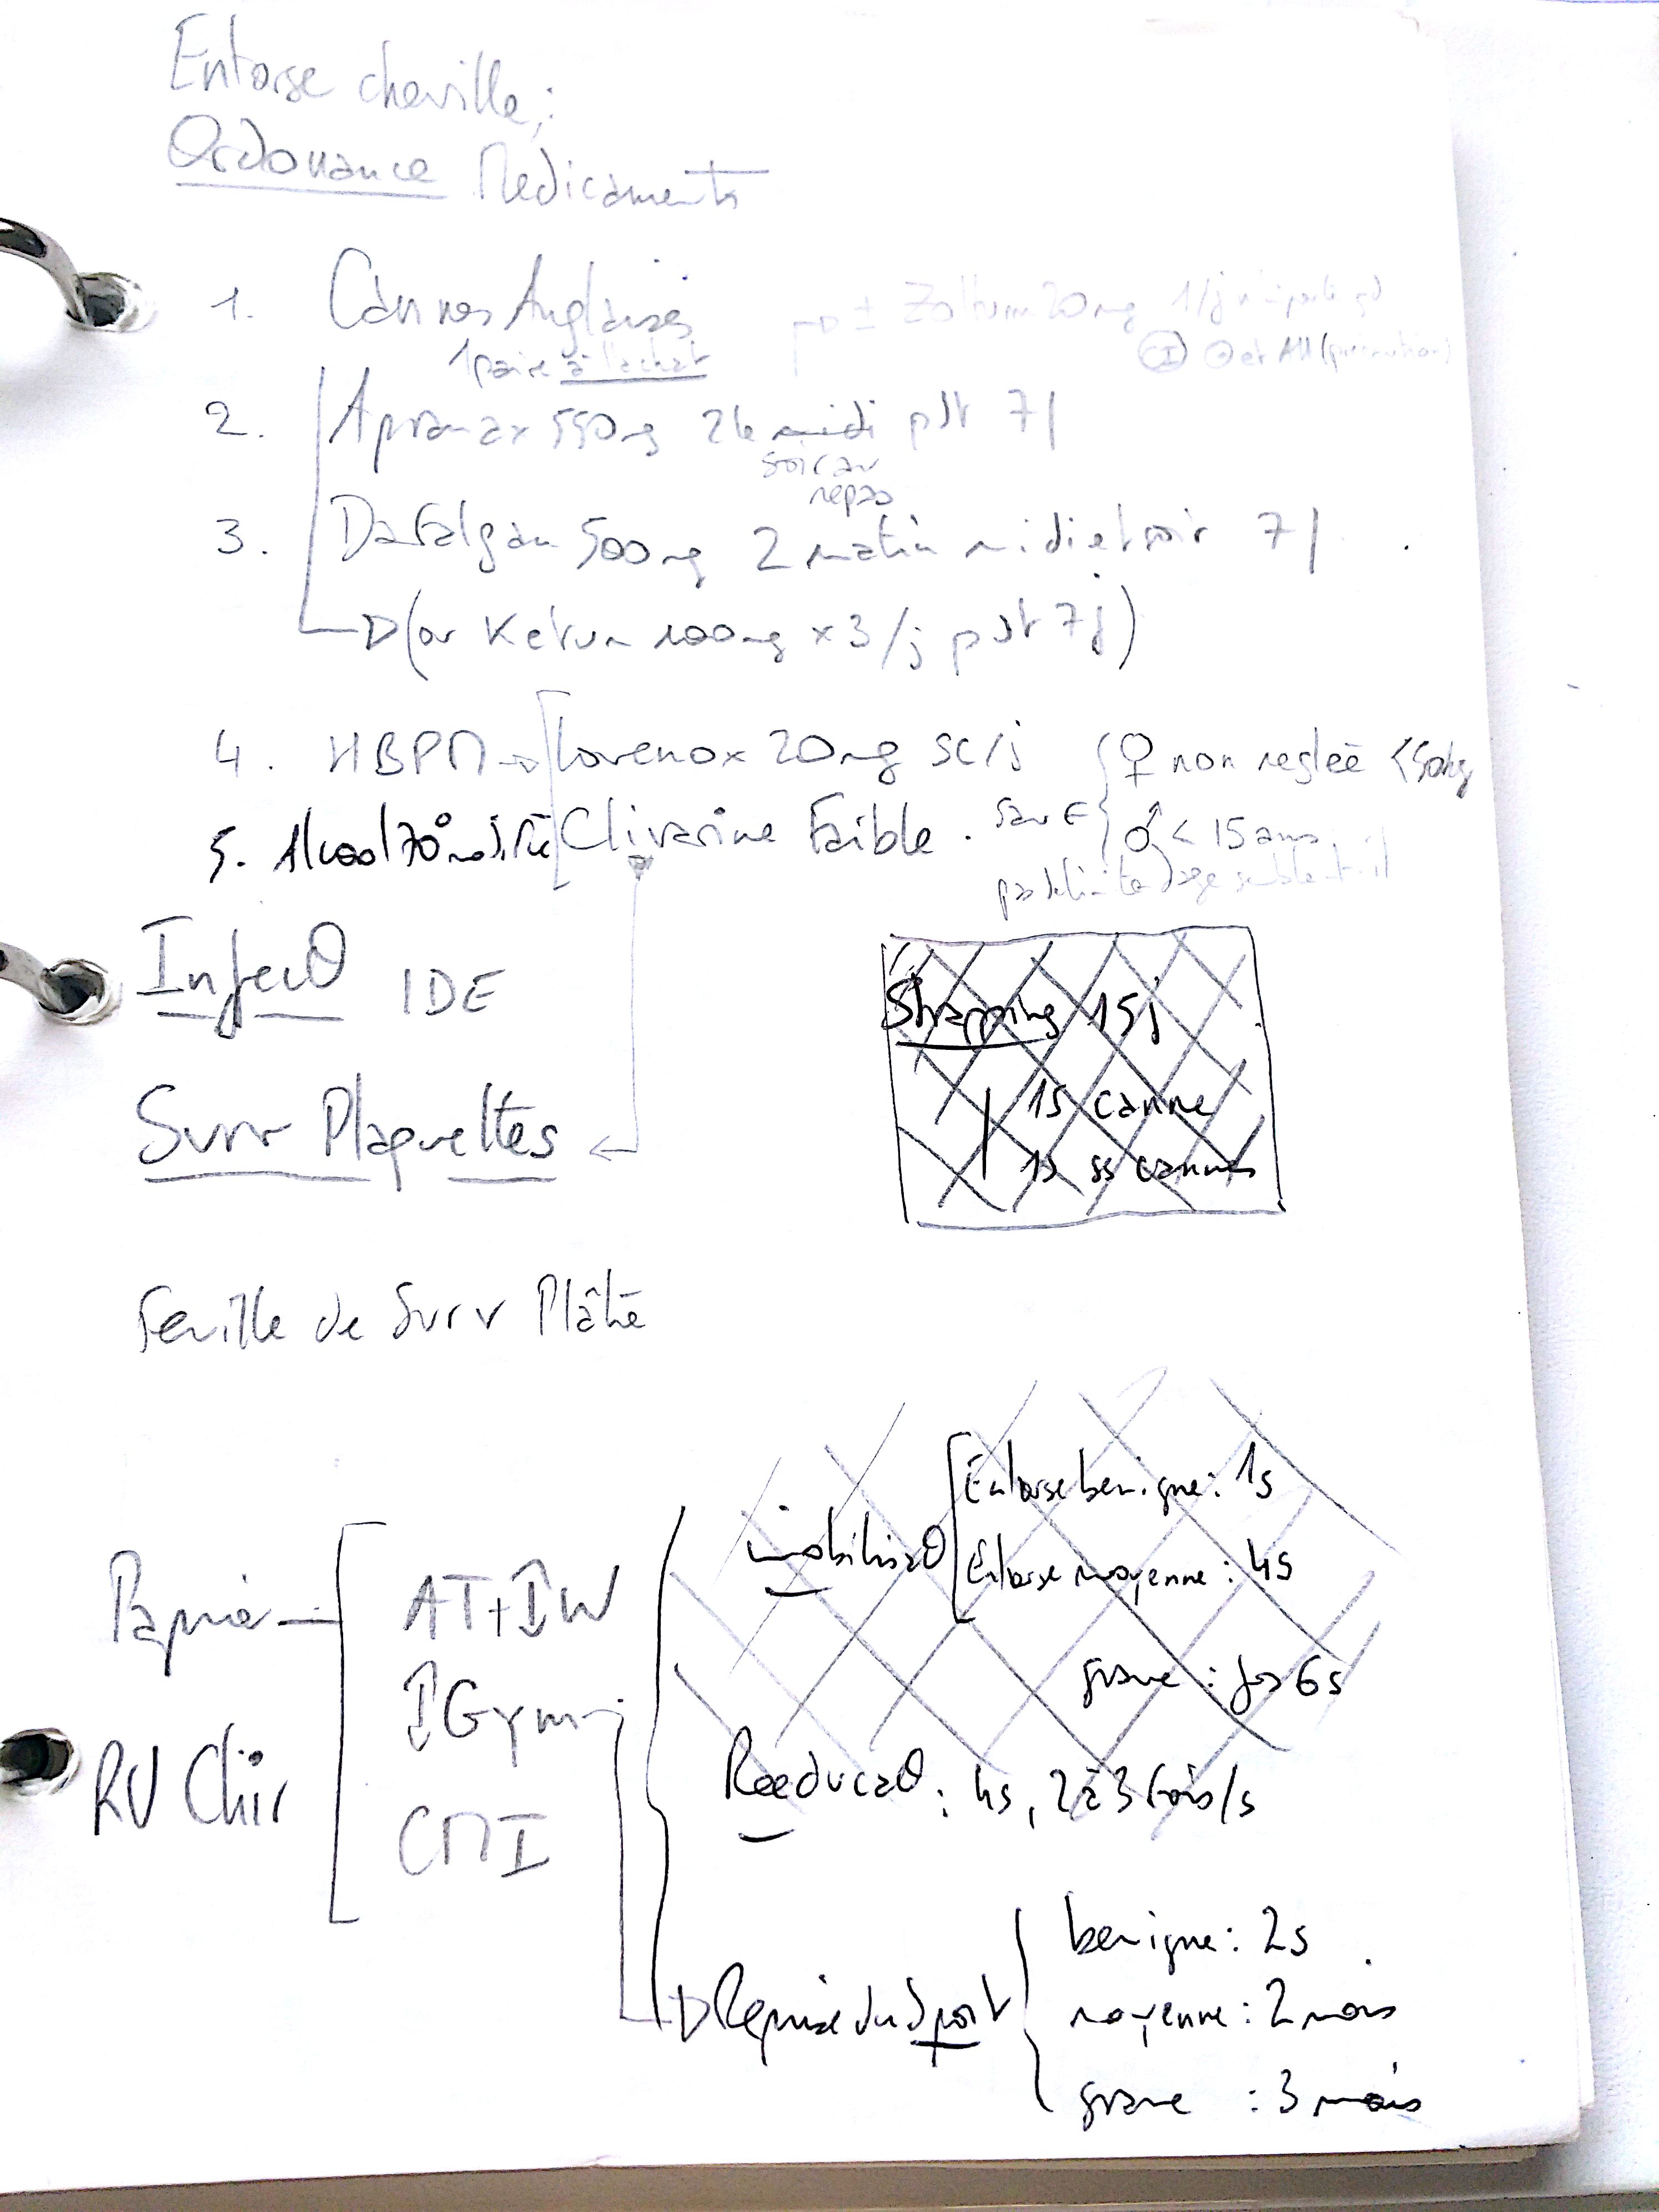 Entorse cheville;
Ordonance Medicaments
1. Cannes Anglaises
1 paire à l'achat
± Zoltum 20mg 1/j n'importe qd
CI et All (précaution)
2. Apranax 550mg midi pdt 7j
soir au
repas
3. Dafalgan 500mg 2 matin midi et soir 7j
(or Ketum 100mg x 3/j pdt 7j)
4. HBPM Lovenox 20mg SC/j
♀ non reglée <50kg
5. Alcool 70° modifié Clivarine Faible.
sauf ♂ < 15 ans
pas de limite d'age semble-t-il
InjecΘ IDE
Strapping 15j
Surv Plaquettes
1s canne
1s ss cannes
Feuille de Surv Plâtre
imobilisaΘ
Entorse benigne: 1s
Entorse moyenne: 4s
grave : 6s
Papier
AT+IW
Gym
CMI
RV Chir
ReeducaΘ: 4s, 2 à 3 fois/s
Reprise du Sport
benigne: 2s
moyenne: 2 mois
grave : 3 mois